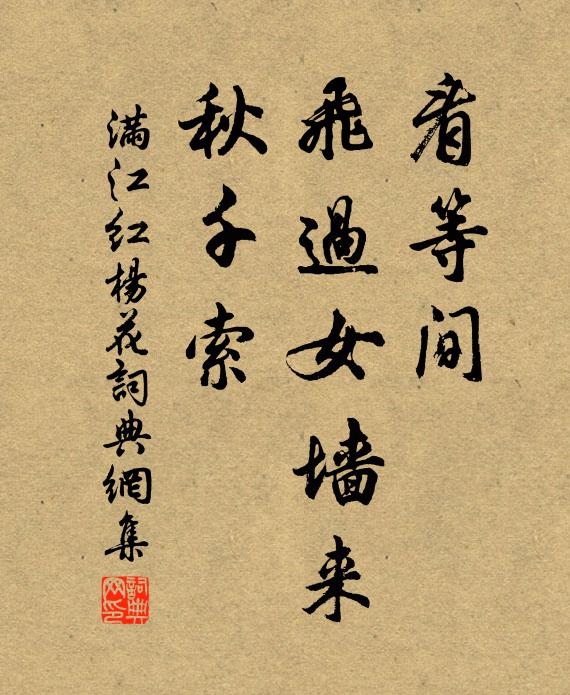 看等间
飛過女墙来
秋千索
满江红楊花詞典網集
詞典
网印